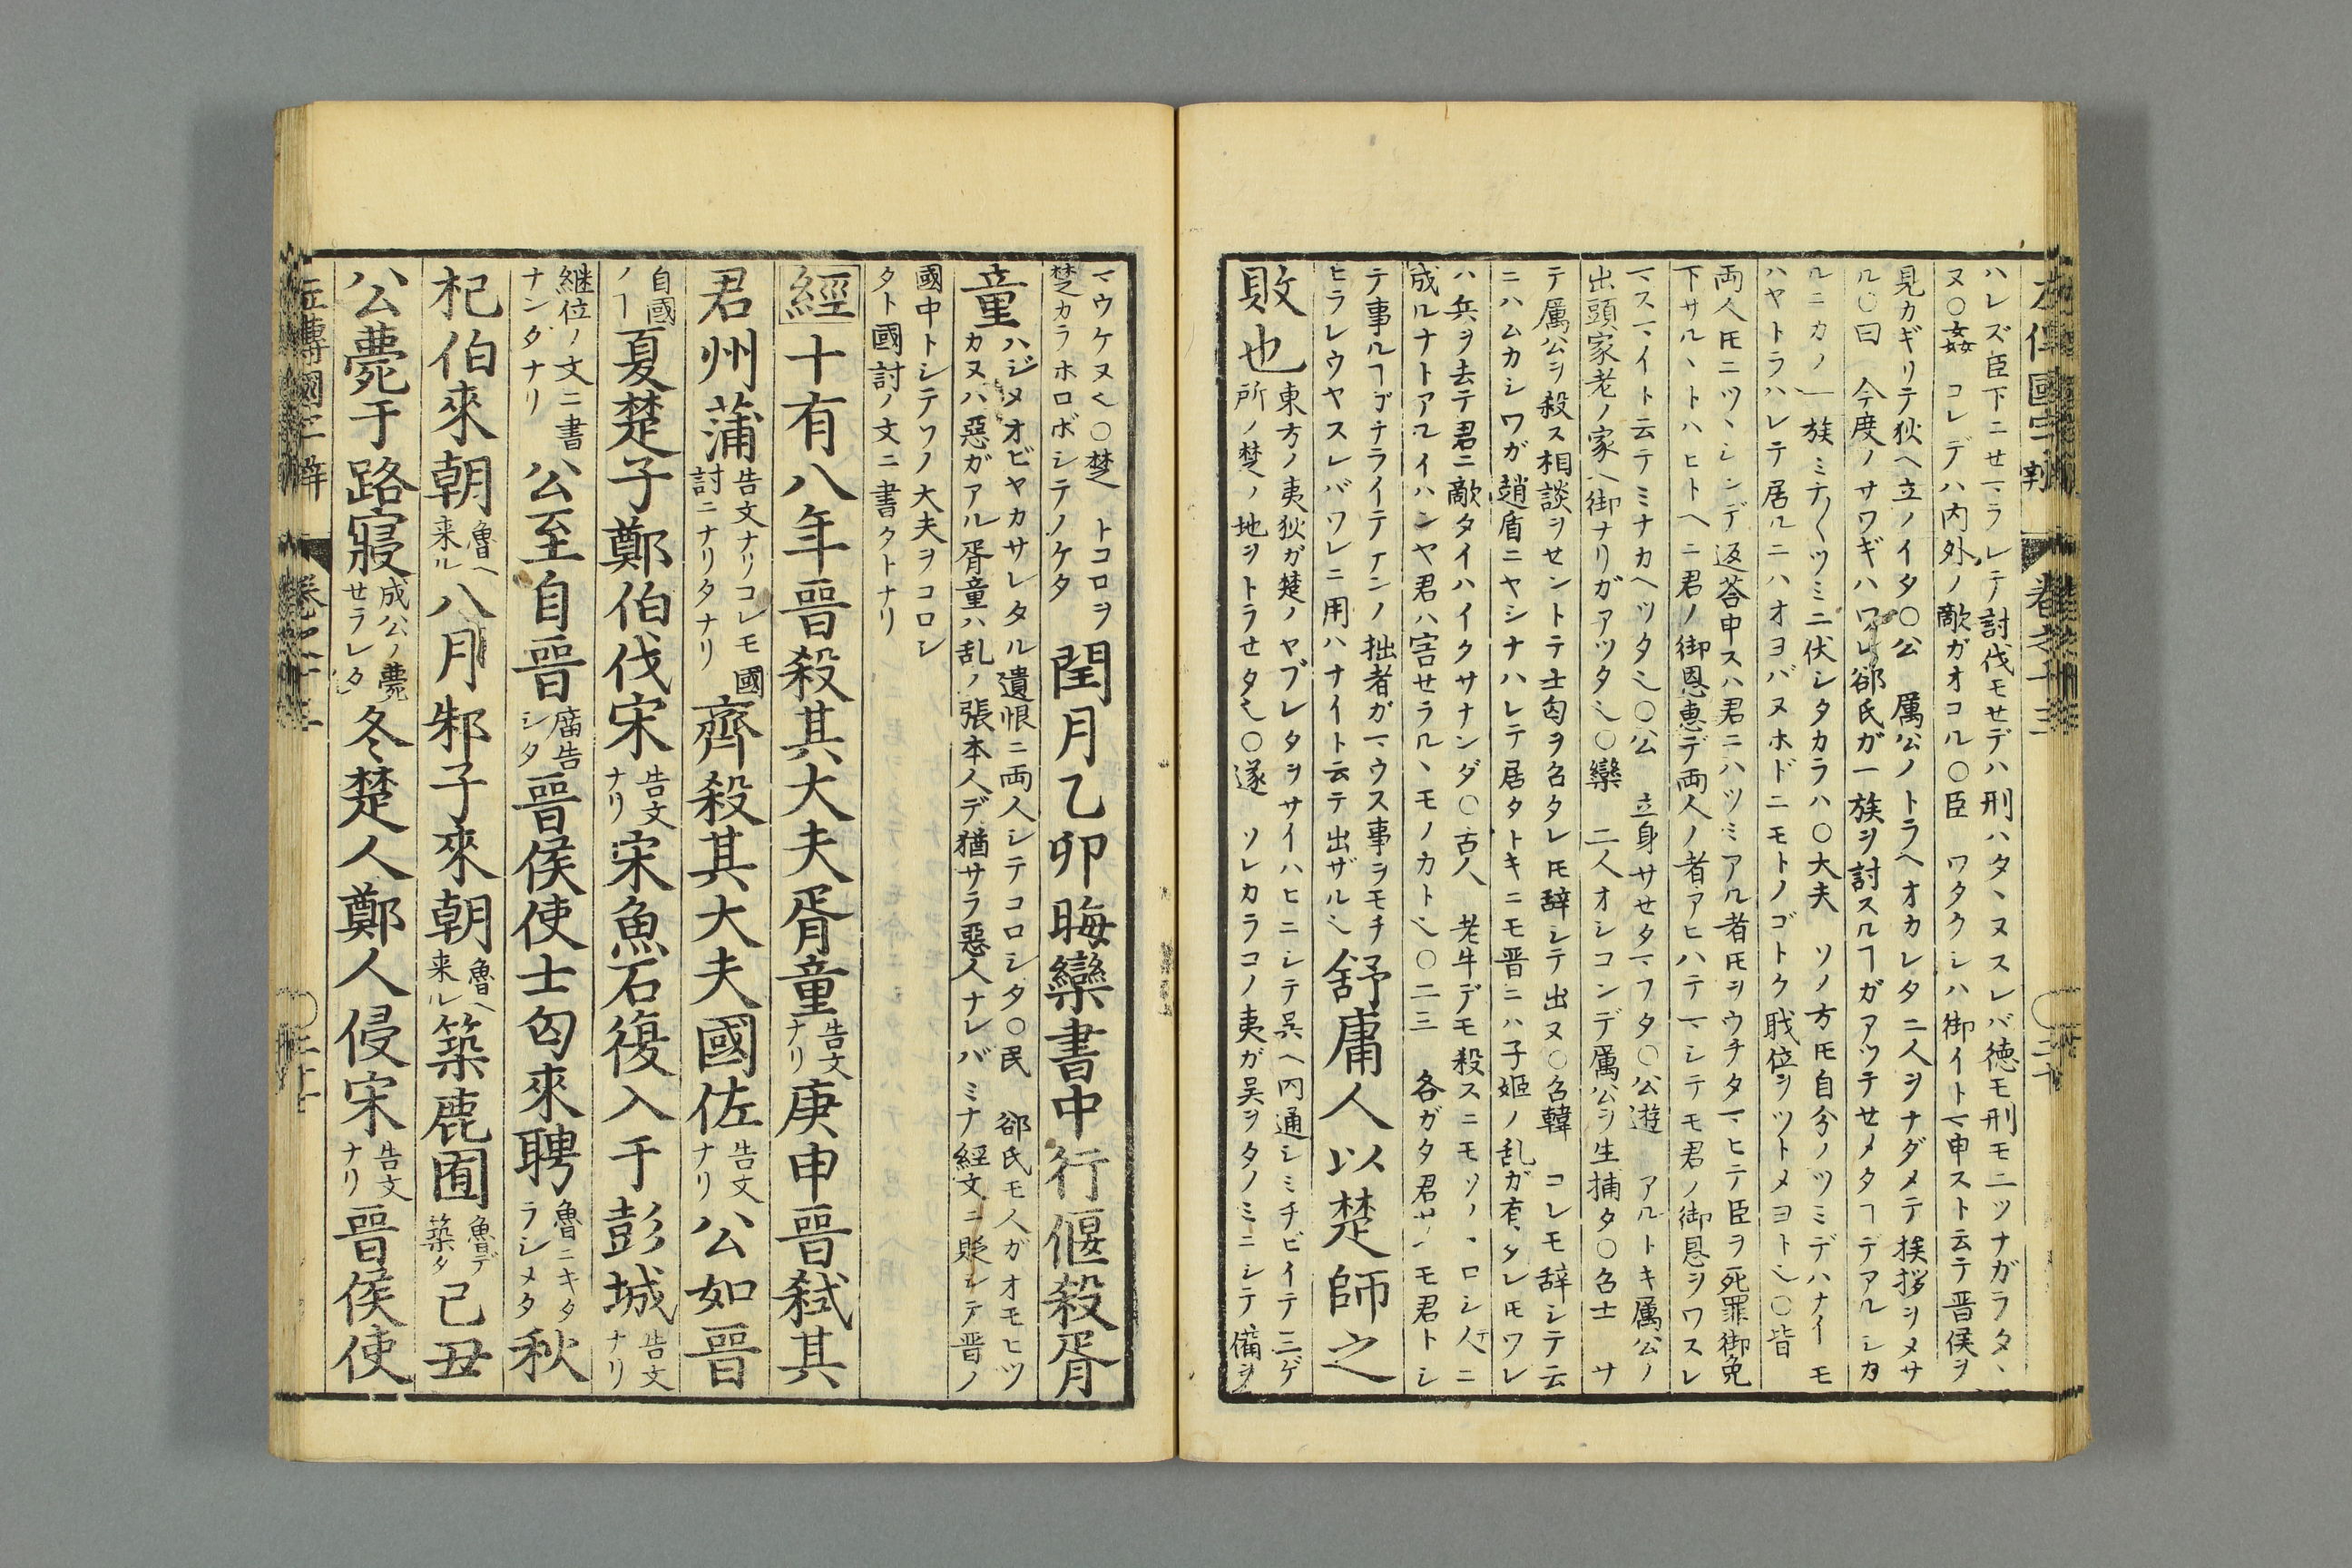 ハレズ臣下ニセマラレテ討伐モセデハ刑ハタヽヌスレバ徳モ刑モ二ツナガラタヽ
ヌ○姦　コレデハ内外ノ敵ガオコル○臣　ワタクシハ御イトマ申スト云テ晋侯ヲ
見カギリテ狄ヘ立ノイタ○公　厲公ノトラヘオカレタ二人ヲナダメテ挨拶ヲメサ
ル○曰　今度ノサワギハワレ郤氏ガ一族ヲ討スルヿガアツテセメタヿデアルシカ
ルニカノ一族ミナ〱ツミニ伏シタカラハ○大夫　ソノ方𪜈自分ノツミデハナイモ
ハヤトラハレテ居ルニハオヨバヌホドニモトノゴトク戝位ヲツトメヨト〆○皆
両人𪜈ニツヽシンデ返荅申スハ君ニハツミアル者𪜈ヲウチタマヒテ臣ヲ死罪御免
下サルヽトハヒトヘニ君ノ御恩恵デ両人ノ者アヒハテマシテモ君ノ御恩ヲワスレ
マスマイト云テミナカヘツタ〆○公　立身サセタマフタ○公遊　アルトキ厲公ノ
出頭家老ノ家ヘ御ナリガアツタ〆○欒　二人オシコンデ厲公ヲ生捕タ○召士　サ
テ厲公ヲ殺ス相談ヲセントテ士匄ヲ召タレ𪜈辞シテ出ヌ○召韓　コレモ辞シテ云
ニハムカシワガ趙盾ニヤシナハレテ居タトキニモ晋ニハ子姫ノ乱ガ有タレ𪜈ワレ
ハ兵ヲ去テ君ニ敵タイハイクサナンダ○古人　老牛デモ殺スニモソノヽロシ人ニ
成ルナトアルイハンヤ君ハ害セラルヽモノカト〆○二三　各ガタ君サヘモ君トシ
テ事ルヿゴナライテナンノ拙者ガマウス事ヲモチ
ヒラレウヤスレバワレニ用ハナイト云テ出ザル〆
舒庸人以楚師之
敗也
東方ノ夷狄ガ楚ノヤブレタヲサイハヒニシテ呉ヘ内通シミチビイテ三ゲ
所ノ楚ノ地ヲトラセタ〆○遂　ソレカラコノ夷ガ呉ヲタノミニシテ備ヲ
マウケヌ〆○楚　トコロヲ
楚カラホロボシテノケタ
閏月乙卯晦欒書中行偃殺胥
童
ハジメオビヤカサレタル遺恨ニ両人シテコロシタ○民　郤氏モ人ガオモヒツ
カヌハ惡ガアル胥童ハ乱ノ張本人デ猶サラ惡人ナレバミナ経文ニ貶シテ晋ノ
國中トシテソノ大夫ヲコロシ
タト國討ノ文ニ書タトナリ
經十有八年晉殺其大夫胥童
告文
ナリ
庚申晉弑其
君州蒲
告文ナリコレモ國
討ニナリタナリ
齊殺其大夫國佐
告文
ナリ
公如晉
自國
ノヿ
夏楚子鄭伯伐宋
告文
ナリ
宋魚石復入于彭城
告文
ナリ
継位ノ文ニ書
ナンダナリ
公至自晉
廟告
シタ
晉侯使士匄來聘
魯ニキタ
ラシメタ
秋
杞伯來朝
魯ヘ
来ル
八月邾子來朝
魯ヘ
来ル
築鹿囿
魯デ
築タ
己丑
公薨于路寢
成公ノ薨
セラレタ
冬楚人鄭人侵宋
告文
ナリ
晉侯使